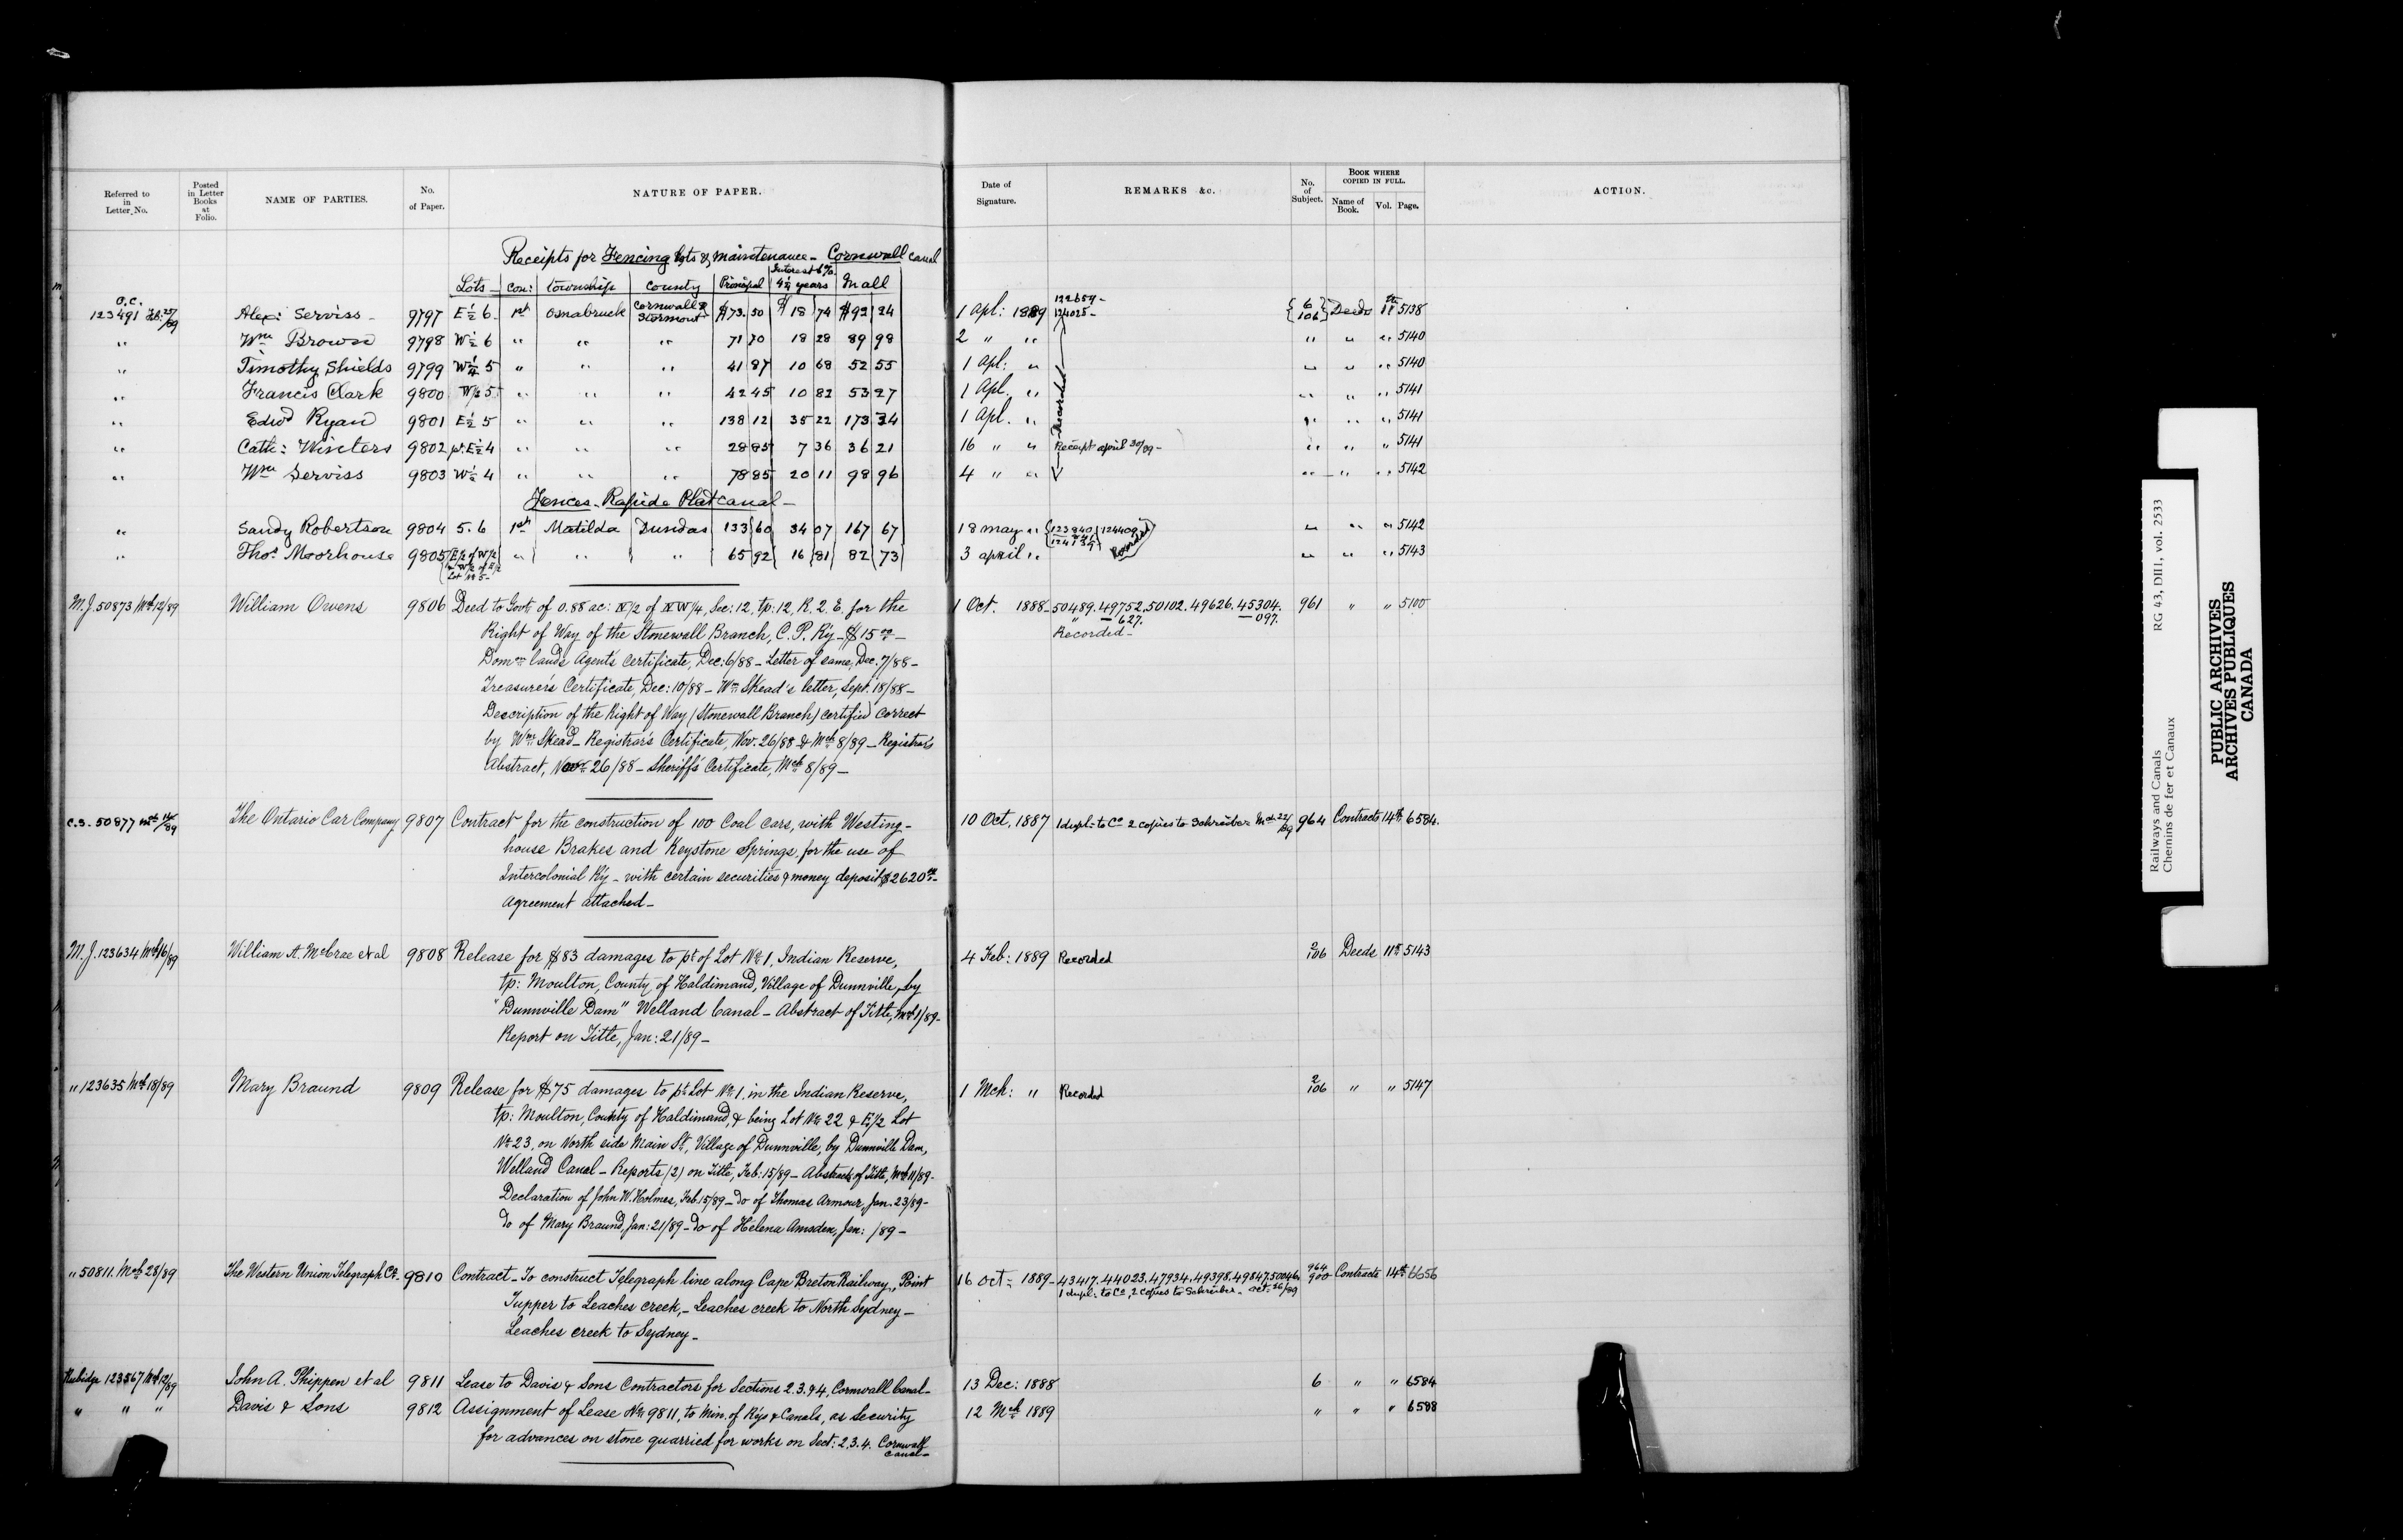 Referred to in Letter No. | Posted in Letter Books at Folio. | NAME OF PARTIES. | No. of Paper. | NATURE OF PAPER. | Date of Signature. | REMARKS &c. | No. of Subject. | BOOK WHERE COPIED IN FULL. Name of Book. Vol. Page. | ACTION.
Receipts for Fencing Lots & maintenance - Cornwall canal
Lots - | Con: | township | County | Principal | Interest 6% 4½ years | In all
O.C. 123491 Feb: 27/89 | Alex: Serviss - | 9797 | E½ 6 | 1st | Osnabruck | Cornwall & Stormont | $73.50 | $18 74 | $92 24 | 1 Apl: 1889 | 122659 - 124025 - | 6 106 | Deeds | 11th | 5138
" | Wm Brown | 9798 | W½ 6 | " | " | " | 71 70 | 18 28 | 89 98 | 2 " " | " | " | " | 5140
" | Timothy Shields | 9799 | W¼ 5 | " | " | " | 41 87 | 10 68 | 52 55 | 1 Apl: " | " | " | " | 5140
" | Francis Clark | 9800 | 5 | " | " | " | 42 45 | 10 82 | 53 27 | 1 Apl. " | " | " | " | 5141
" | Edwd Ryan | 9801 | E½ 5 | " | " | " | 138 12 | 35 22 | 173 34 | 1 Apl. " | Recorded | " | " | " | 5141
" | Cath: Winters | 9802 | pt. E½ 4 | " | " | " | 28 85 | 7 36 | 36 21 | 16 " " | Receipt april 30/89 - | " | " | " | 5141
" | Wm Serviss | 9803 | W½ 4 | " | " | " | 78 85 | 20 11 | 98 96 | 4 " " | " | " | " | 5142
Fences - Rapide Plat canal -
" | Sandy Robertson | 9804 | 5. 6 | 1st | Matilda | Dundas | 133 60 | 34 07 | 167 67 | 18 may " | 123940 124409 | " | " | " | 5142
" | Thos Moorhouse | 9805 | E/2 of W/2 Lot No 5 - | " | " | " | 65 92 | 16 81 | 82 73 | 3 april " | Recorded | " | " | " | 5143
M.J. 50873 Mch 12/89 | William Owens | 9806 | Deed to Govt of 0.88 ac: N/2 of NW/4, Sec: 12, tp: 12, R. 2 E. for the | 1 Oct. 1888 - | 50489. 49752. 50102. 49626. 45304. | 961 | " | " | 5100
Right of Way of the Stonewall Branch, C. P. Ry - $15 00 - | " — 627. — 097.
Domn lands Agent's Certificate, Dec: 6/88 - Letter of same, Dec: 7/88 - | Recorded -
Treasurer's Certificate, Dec: 10/88 - Wm Skead's letter, Sept: 18/88 -
Description of the Right of Way (Stonewall Branch) certified correct
by Wm Skead - Registrar's Certificate, Nov. 26/88 & Mch 8/89 - Registrar's
Abstract, Nov 26/88 - Sheriff's Certificate, Mch 8/89 -
C.S. 50877 Mch 14/89 | The Ontario Car Company | 9807 | Contract for the construction of 100 Coal cars, with Westing- | 10 Oct. 1887 | 1 dupl - to Co 2 copies to Schreiber Mch 22/89 | 964 | Contracts | 14th | 6584.
house Brakes and Keystone Springs, for the use of
Intercolonial Ry - with certain securities & money deposit $2620 00 -
Agreement attached -
M.J. 123634 Mch 16/89 | William A. McCrae et al | 9808 | Release for $83 damages to pt of Lot No 1, Indian Reserve, | 4 Feb: 1889 | Recorded | 2 106 | Deeds | 11th | 5143
tp: Moulton, County of Haldimand, Village of Dunnville, by
"Dunnville Dam" Welland Canal - Abstract of Title, Mch 1/89 -
Report on Title, Jan: 21/89 -
" 123635 Mch 18/89 | Mary Braund | 9809 | Release for $75 damages to pt Lot No 1. in the Indian Reserve, | 1 Mch: " | Recorded | 2 106 | " | " | 5147
tp: Moulton, County of Haldimand, & being Lot No 22 & E½ Lot
No 23, on North side Main St, Village of Dunnville, by Dunnville Dam,
Welland Canal - Reports (2) on Title, Feb: 15/89 - Abstracts of Title, Mch 11/89 -
Declaration of John W. Holmes, Feb 15/89 - Do of Thomas Armour, Jan. 23/89 -
Do of Mary Braund, Jan: 21/89 - Do of Helena Amsden, Jan: /89 -
" 50811. Mch 28/89 | The Western Union Telegraph Co. | 9810 | Contract - To construct Telegraph line along Cape Breton Railway, Point | 16 Oct - 1889 - | 43417. 44023. 47934. 49398. 49847. 50046. | 964 900 | Contracts | 14th | 6656
Tupper to Leaches creek, - Leaches creek to North Sydney - | 1 dupl - to Co, 2 copies to Schreiber - Oct - 26/89
Leaches creek to Sydney -
Rubidge 123567 Mch 12/89 | John A. Phippen et al | 9811 | Lease to Davis & Sons Contractors for Sections 2. 3. & 4, Cornwall Canal - | 13 Dec: 1888 | 6 | " | " | 6584
" " " | Davis & Sons | 9812 | Assignment of Lease No 9811, to Min. of Rys & Canals, as Security | 12 Mch 1889 | " | " | " | 6588
for advances on stone quarried for works on Sect: 2. 3. 4. Cornwall canal -
Railways and Canals RG 43, DIII, vol. 2533
Chemins de fer et Canaux
PUBLIC ARCHIVES
ARCHIVES PUBLIQUES
CANADA